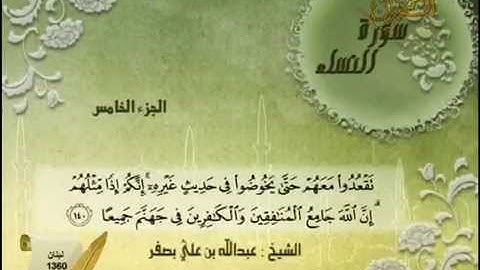 القرآن
سورة
النساء
الجزء الخامس
نَقْعُدُوا۟ مَعَهُمْ حَتَّىٰ يَخُوضُوا۟ فِى حَدِيثٍ غَيْرِهِۦٓ ۚ إِنَّكُمْ إِذًا مِّثْلُهُمْ
ۗ إِنَّ ٱللَّهَ جَامِعُ ٱلْمُنَٰفِقِينَ وَٱلْكَٰفِرِينَ فِى جَهَنَّمَ جَمِيعًا ١٤٠
الشيخ : عبدالله بن علي بصفر
لبنان
1360